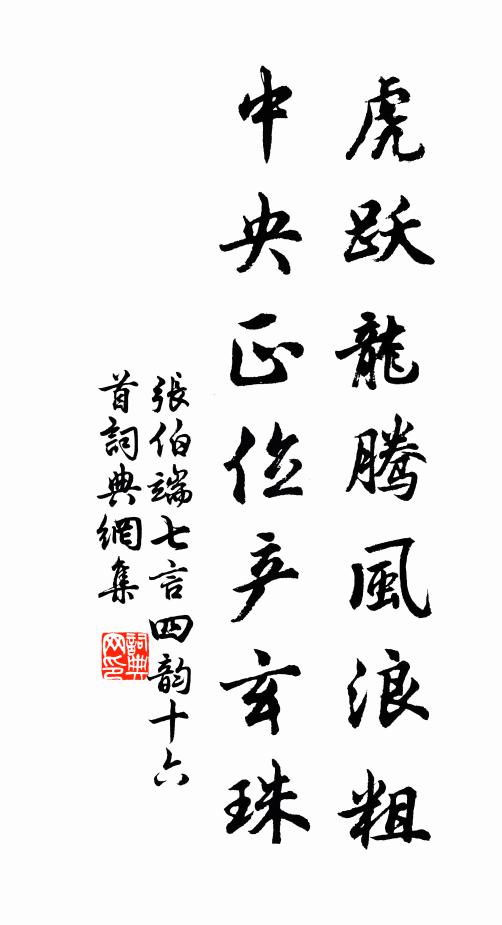 虎跃龍騰風浪粗
中央正位产玄珠
張伯端七言四韵十六
首詞典網集
詞典网印